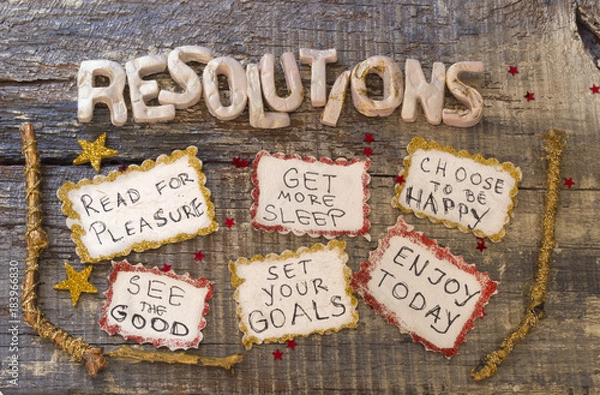 RESOLUTIONS
READ FOR
PLEASURE
GET
MORE
SLEEP
CHOOSE
TO BE
HAPPY
SEE
THE
GOOD
SET
YOUR
GOALS
ENJOY
TODAY
Adobe Stock | #183966830